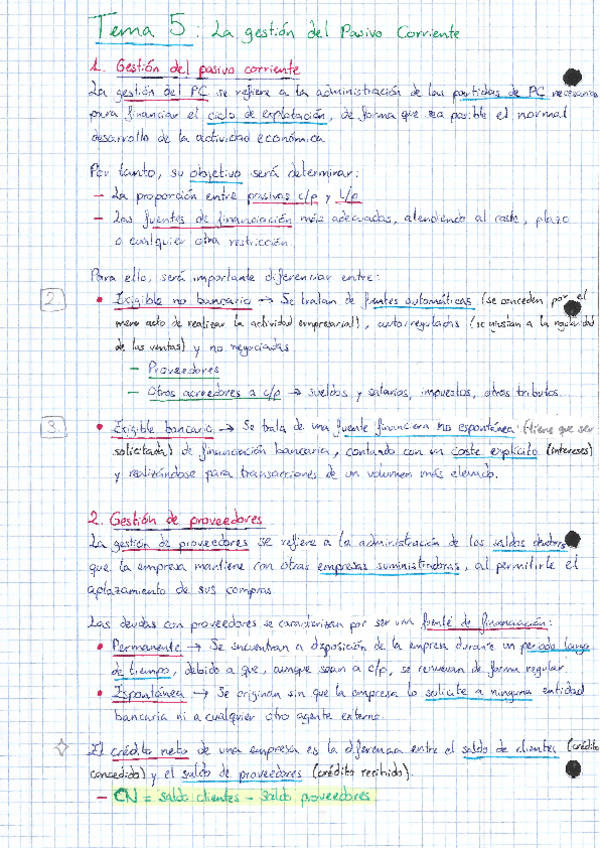 Tema 5: La gestión del Pasivo Corriente
1. Gestión del pasivo corriente
La gestión del PC se refiere a la administración de las partidas de PC necesarias
para financiar el ciclo de explotación, de forma que sea posible el normal
desarrollo de la actividad económica.
Por tanto, su objetivo será determinar:
- La proporción entre pasivos c/p y l/p
- Las fuentes de financiación más adecuadas, atendiendo al coste, plazo
o cualquier otra restricción.
Para ello, será importante diferenciar entre:
2. • Exigible no bancario → Se tratan de fuentes automáticas (se conceden por el
mero acto de realizar la actividad empresarial), autorreguladas (se ajustan a la regularidad
de las ventas) y no negociadas
- Proveedores
- Otros acreedores a c/p → sueldos y salarios, impuestos, otros tributos...
3. • Exigible bancario → Se trata de una fuente financiera no espontánea (tiene que ser
solicitada) de financiación bancaria, contando con un coste explícito (intereses)
y realizándose para transacciones de un volumen más elevado.
2. Gestión de proveedores
La gestión de proveedores se refiere a la administración de los saldos deudores
que la empresa mantiene con otras empresas suministradoras, al permitirle el
aplazamiento de sus compras
Las deudas con proveedores se caracterizan por ser una fuente de financiación:
• Permanente → Se encuentran a disposición de la empresa durante un periodo largo
de tiempo, debido a que, aunque sean a c/p, se renuevan de forma regular.
• Espontánea → Se originan sin que la empresa lo solicite a ninguna entidad
bancaria ni a cualquier otro agente externo.
El crédito neto de una empresa es la diferencia entre el saldo de clientes (crédito
concedido) y el saldo de proveedores (crédito recibido).
- CN = saldo clientes - saldo proveedores